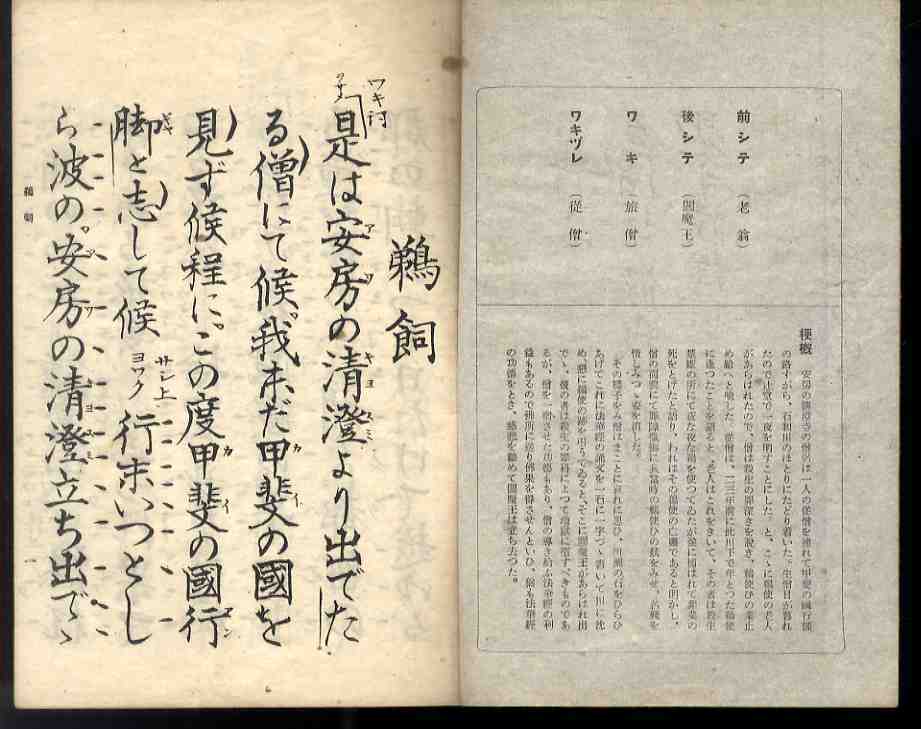 前シテ (老翁)
後シテ (閻魔王)
ワキ (旅僧)
ワキヅレ (從僧)
梗概 安房の清澄寺の僧が一人の從僧を連れて甲斐の國行脚
の路すがら、石和川のほとりにたどり着いた。生憎日が暮れ
たので辻堂で一夜を明すことにした。と、こゝに鵜使の老人
があらはれたので、僧は殺生の罪深さを說き、鵜使ひの業止
め給へと喩した。從僧は、二三年前に此川下で年とつた鵜使
に逢つたことを語ると、老人はこれをきいて、その者は殺生
禁斷の所にて夜な夜な鵜を使つてゐたが後に捕はれて非業の
死をとげたと語り、われはその鵜使の亡靈であると明かし、
僧の面前にて罪障懺悔に在當時の鵜使ひの狀をみせ、名殘を
惜しみつゝ姿を消した。
その樣子をみ僧はまことに哀れに思ひ、川瀨の石をひらひ
あげてこれに法華經の經文を一石に一字づゝ書いて川に沈
め、懇に鵜使の跡を弔うてゐると、そこに閻魔王があらはれ出
で、彼の者は殺生の罪科によつて地獄に墮すべきものであ
るが、僧を一宿させた功德もあり、僧の導き給ふ法華經の利
益もあるので極所に送り佛果を得させんといひ、猶も法華經
の功德をとき、慈悲を勸めて閻魔王は立ち去つた。
鵜飼
ワキ詞
是は安房の清澄より出でた
る僧にて候。我未だ甲斐の國を
見ず候程に。この度甲斐の國行
脚と志して候 サシ上 ヨワク 行末いつとし
ら波の。安房の清澄立ち出でゝ
鵜飼
一